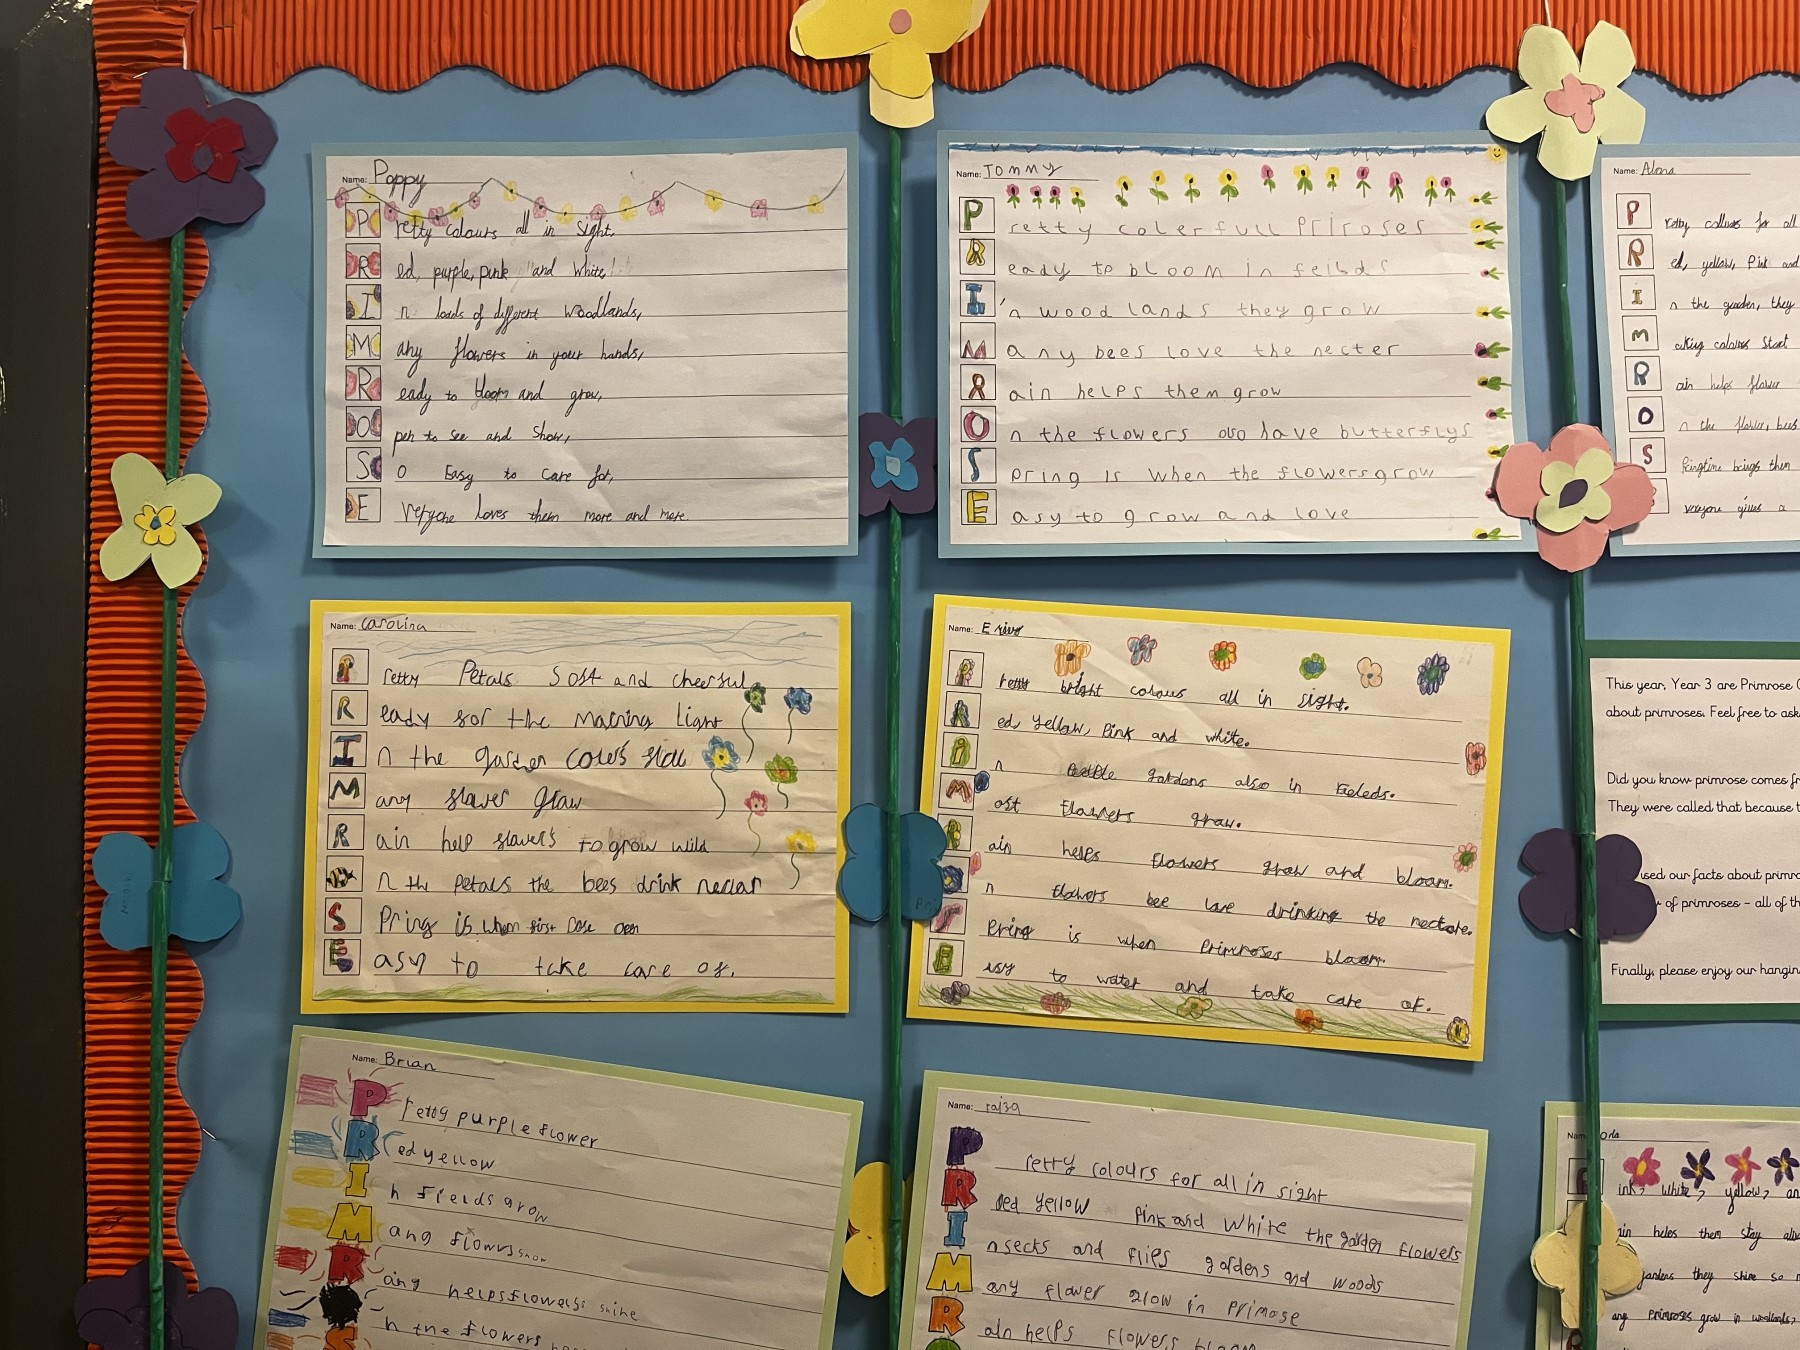 Name: Poppy
Pretty colours all in sight,
Red, purple, pink and white,
In loads of different woodlands,
Many flowers in your hands,
Ready to bloom and grow,
Open to see and show,
So Easy to care for,
Everyone loves them more and more.
Name: Tommy
Pretty colerfull Priroses
Ready to bloom in feilds
In wood lands they grow
Many bees love the necter
Rain helps them grow
On the flowers also have butterflys
Spring is when the flowers grow
Easy to grow and love
Name: Alma
Pretty colours for all
Red, yellow, Pink and
In the garden, they
Making colours Start
Rain helps flower
On the flower, bees
SPringtime brings then
veryone gives a
Name: Carolina
Pretty Petals Soft and cheerful
Ready for the Morning Light
In the garden
Many flower grow
Rain help flowers to grow wild
n the Petals the bees drink nectar
SPring is when first open
Easy to take care of.
Name:
Pretty bright colours all in sight.
Red, yellow, Pink and white.
In gardens also in
Most flowers grow.
Rain helps flowers grow and bloom.
n flowers bee love drinking the nectore.
SPring is when Primroses bloom.
Eesy to water and take care of.
This year, Year 3 are Primrose
about primroses. Feel free to ask
Did you know primrose comes
They were called that because
used our facts about
of primroses - all of
Finally, please enjoy our
Name: Brian
Pretty purple flower
Red yellow
In fields grow
Many
helps flowers shine
n the flowers
Name: raisa
Pretty colours for all in sight
Red Yellow Pink and White the garden flowers
Insecks and flies gardens and woods
Many flower grow in Primose
Rain helps flowers bloom
Name: Orla
Pink, white, yellow,
ain helps them stay
gardens they shine so
any Primroses grow in woodlands,